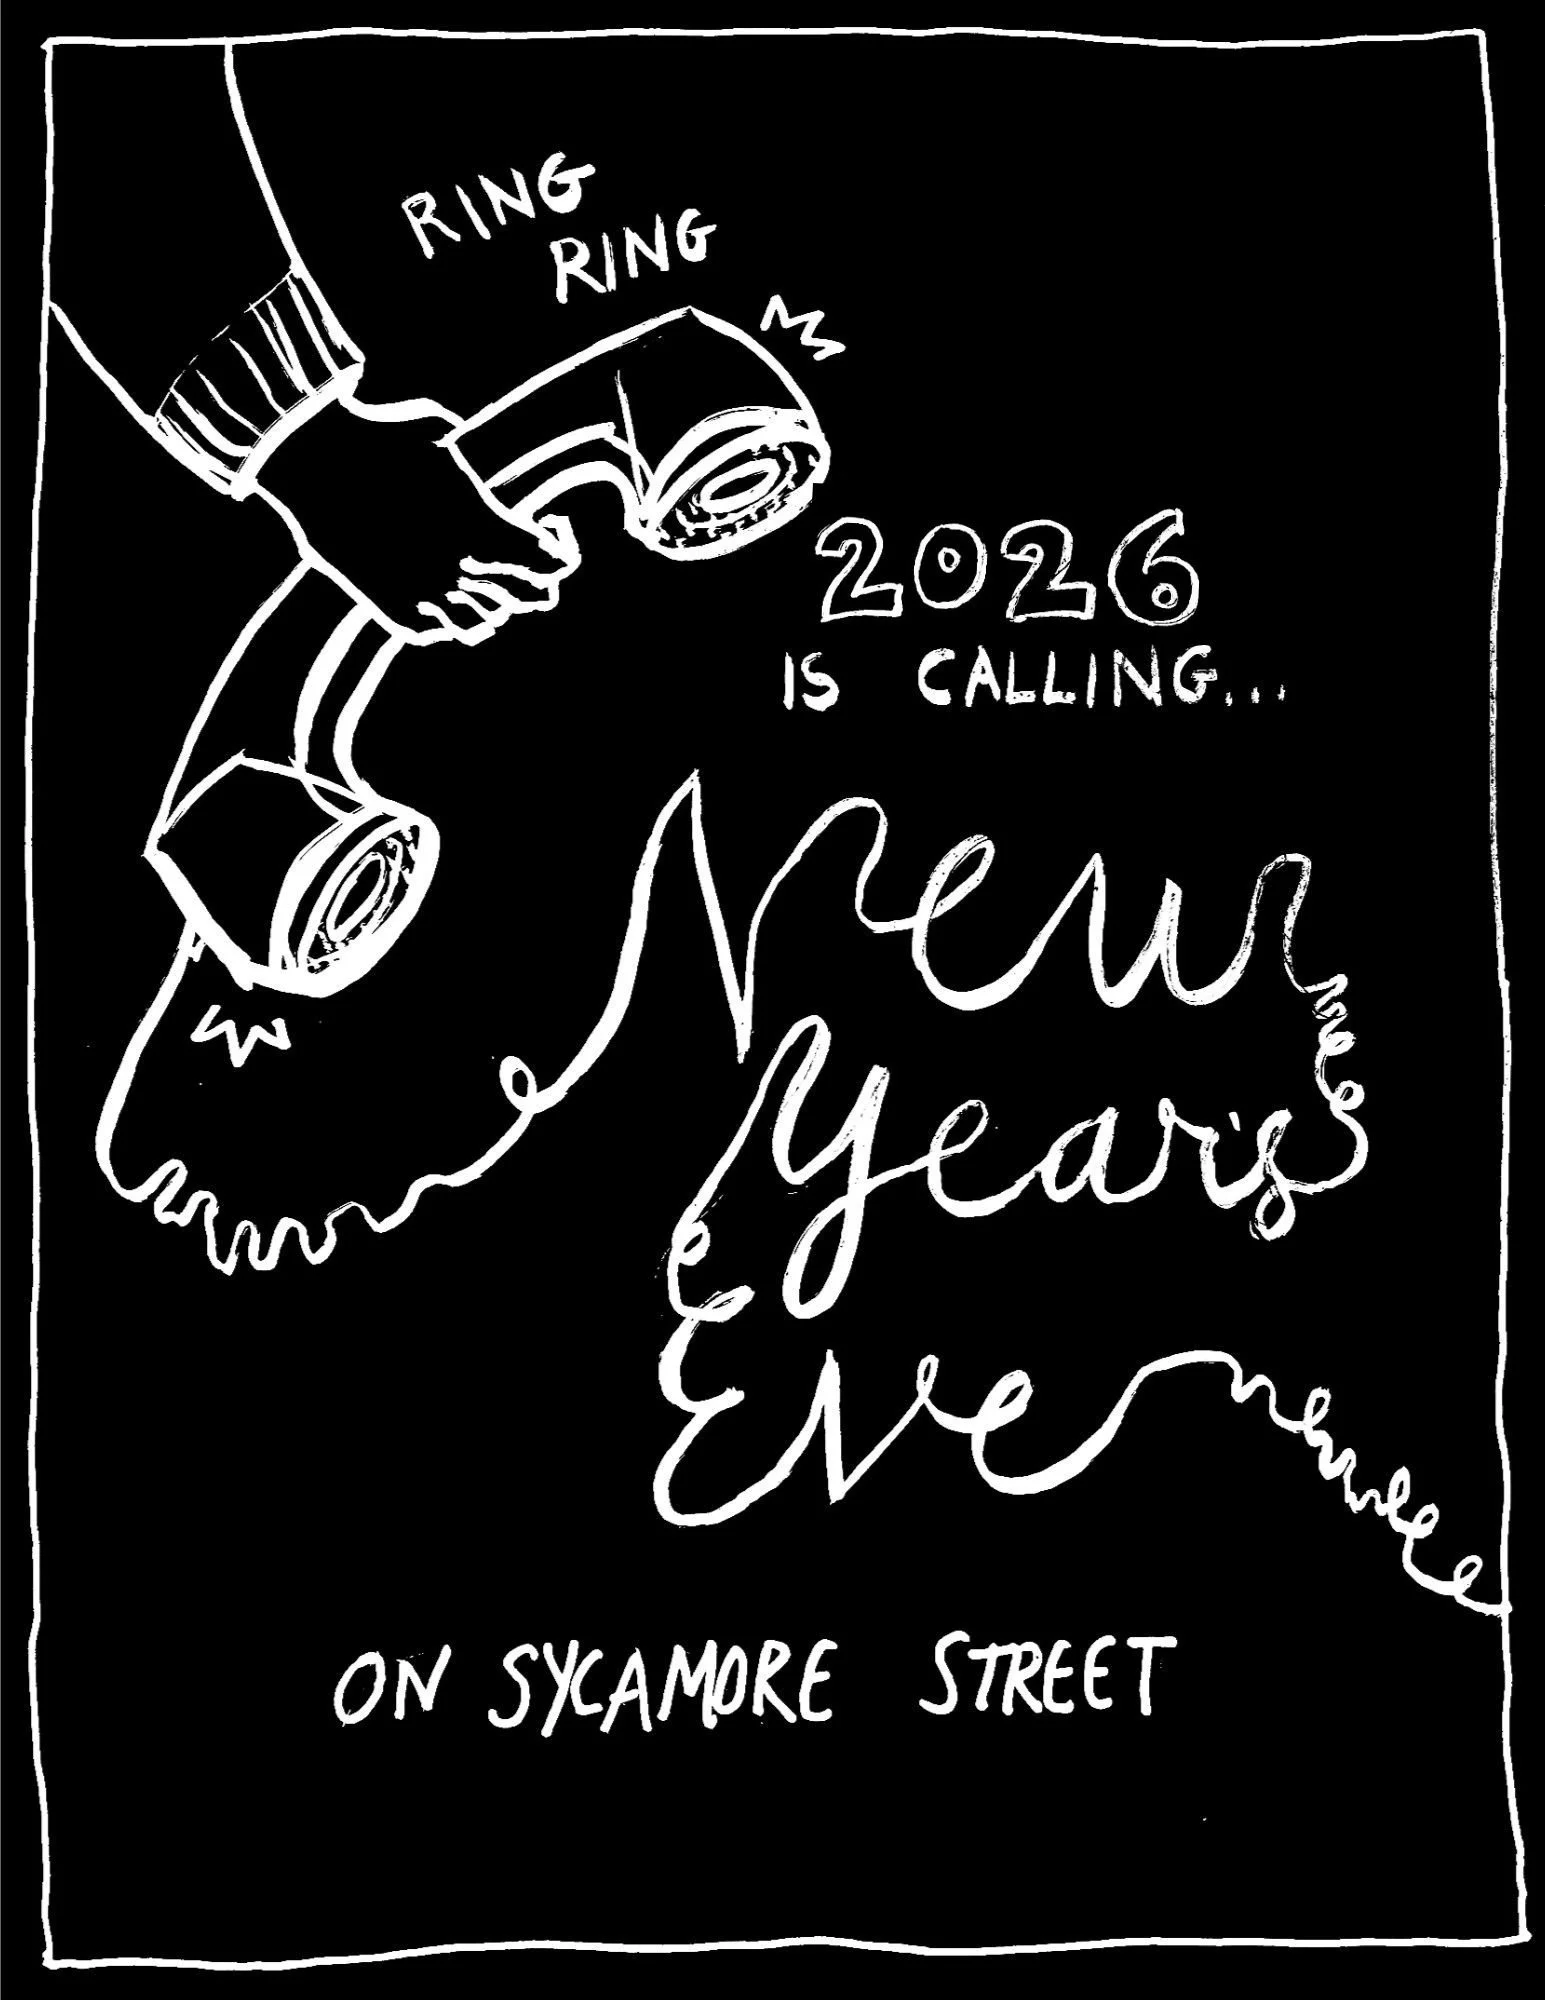 RING
RING
2026
IS CALLING...
New
Year's
Eve
ON SYCAMORE STREET